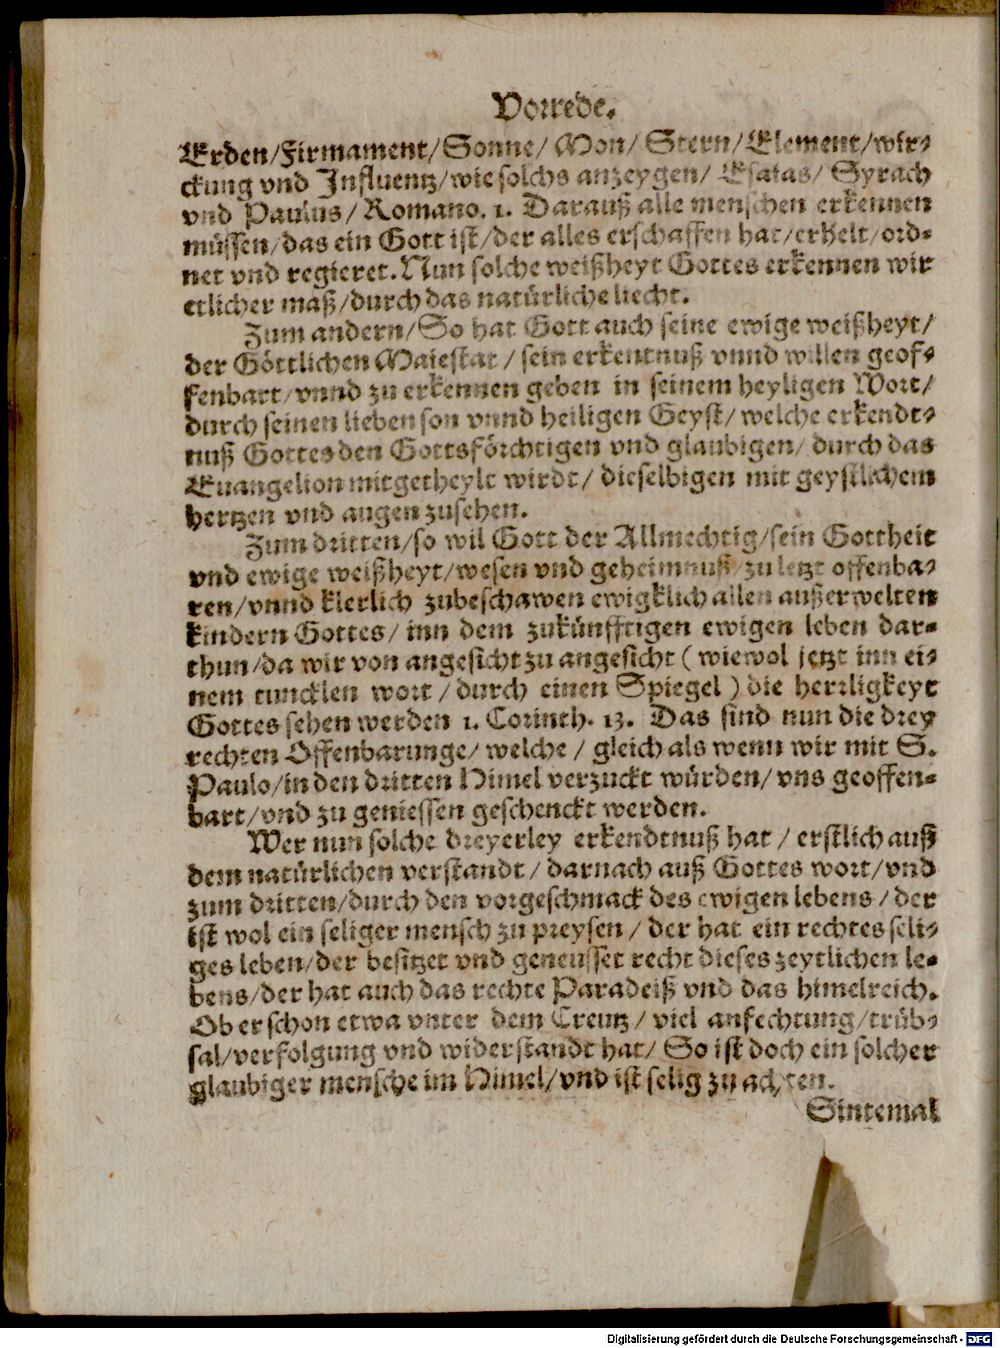 Vorrede.
Erden/Firmament/Sonne/ Mon/ Stern/Element/wir-
ckung vnd Influentz/wie solchs anzeygen/ Esaias/ Syrach
vnd Paulus/ Romano. 1. Darauß alle menschen erkennen
müssen/das ein Gott ist/der alles erschaffen hat/erhelt/ord-
net vnd regieret. Nun solche weißheyt Gottes erkennen wir
etlicher maß/durch das natürliche liecht.
Zum andern/So hat Gott auch seine ewige weißheyt/
der Göttlichen Maiestat / sein erkentnuß vnnd willen geof-
fenbart/vnnd zu erkennen geben in seinem heyligen Wort/
durch seinen lieben son vnnd heiligen Geyst/ welche erkendt-
nuß Gottes den Gottsförchtigen vnd glaubigen/ durch das
Euangelion mitgetheylt wirdt/ dieselbigen mit geystlichem
hertzen vnd augen zusehen.
Zum dritten/so wil Gott der Allmechtig/sein Gottheit
vnd ewige weißheyt/wesen vnd geheimnuß/zu letzt offenba-
ren/vnnd klerlich zubeschawen ewigklich allen außerwelten
kindern Gottes/ inn dem zukünfftigen ewigen leben dar-
thun/da wir von angesicht zu angesicht ( wiewol jetzt inn ei-
nem tuncklen wort / durch einen Spiegel ) die herrligkeyt
Gottes sehen werden 1. Corinth. 13. Das sind nun die drey
rechten Offenbarunge/ welche / gleich als wenn wir mit S.
Paulo/in den dritten Himel verzuckt würden/ vns geoffen-
bart/vnd zu geniessen geschenckt werden.
Wer nun solche dreyerley erkendtnuß hat / erstlich auß
dem natürlichen verstandt / darnach auß Gottes wort/vnd
zum dritten/durch den vorgeschmack des ewigen lebens / der
ist wol ein seliger mensch zu preysen / der hat ein rechtes seli-
ges leben/der besitzet vnd geneusset recht dieses zeytlichen le-
bens/der hat auch das rechte Paradeiß vnd das himelreich.
Ob er schon etwa vnter dem Creutz / viel anfechtung/trüb-
sal/verfolgung vnd widerstandt hat/ So ist doch ein solcher
glaubiger mensche im Himel/vnd ist selig zu achten.
Sintemal
Digitalisierung gefördert durch die Deutsche Forschungsgemeinschaft - DFG